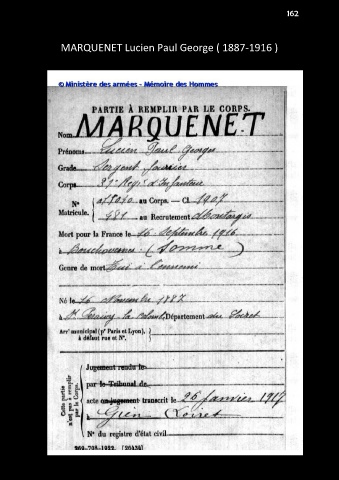 162
MARQUENET Lucien Paul George ( 1887-1916 )
© Ministère des armées - Mémoire des Hommes
PARTIE À REMPLIR PAR LE CORPS.
Nom MARQUENET
Prénoms Lucien Paul Georges
Grade Sergent fourrier
Corps 31e Regt d'Infanterie
N° au Corps. — Cl. 1907
Matricule. 481 au Recrutement Montargis
Mort pour la France le 16 Septembre 1916
à Bouchavesnes (Somme)
Genre de mort Tué à l'ennemi
Né le 16 Novembre 1887
à Département du Loiret
Arrt municipal (pr Paris et Lyon),
à défaut rue et N°.
Cette partie
n'est pas à remplir
par le Corps.
Jugement rendu le
par le Tribunal de
acte ou jugement transcrit le 26 janvier 1917
à Gien Loiret
N° du registre d'état civil
269-708-1922. [26434]